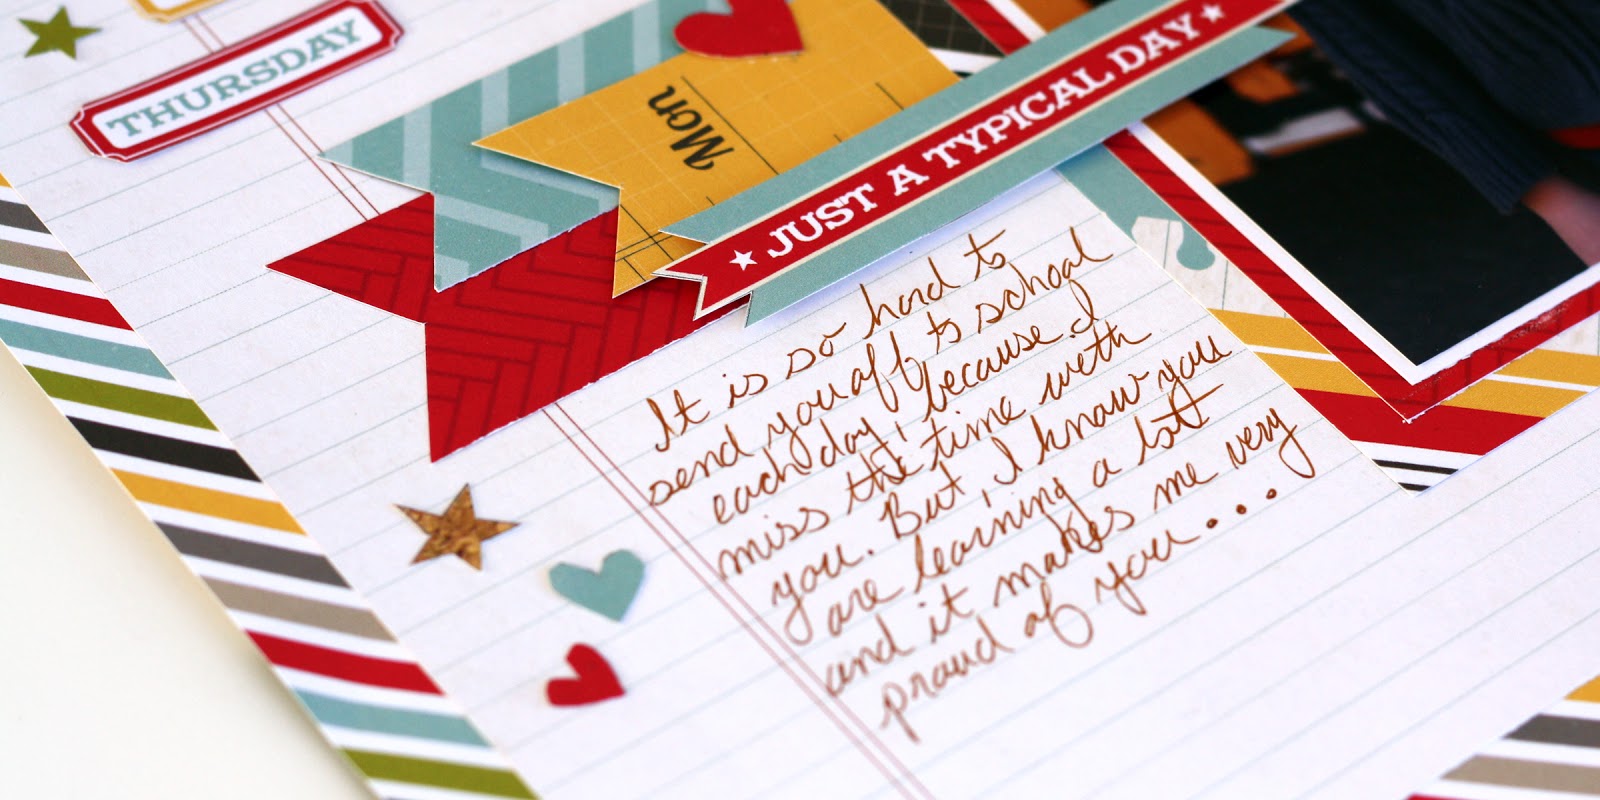 THURSDAY
Mon
JUST A TYPICAL DAY
It is so hard to
send you off to school
each day, because I
miss the time with
you. But, I know you
are learning a lot
and it makes me very
proud of you...